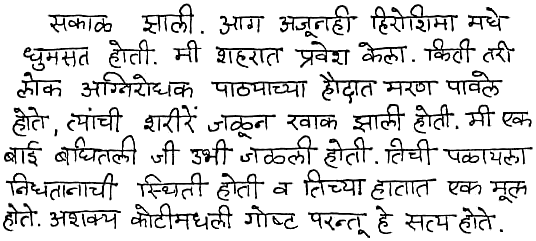 सकाळ झाली. आग अजूनही हिरोशिमा मधे
धुमसत होती. मी शहरात प्रवेश केला. किती तरी
लोक अग्निरोधक पाण्याच्या हौदात मरण पावले
होते, त्यांची शरीरें जळून खाक झाली होती. मी एक
बाई बघितली जी उभी जळली होती. तिची पळायला
निघतानाची स्थिती होती व तिच्या हातात एक मूल
होते. अशक्य कोटीमधली गोष्ट परन्तू हे सत्य होते.